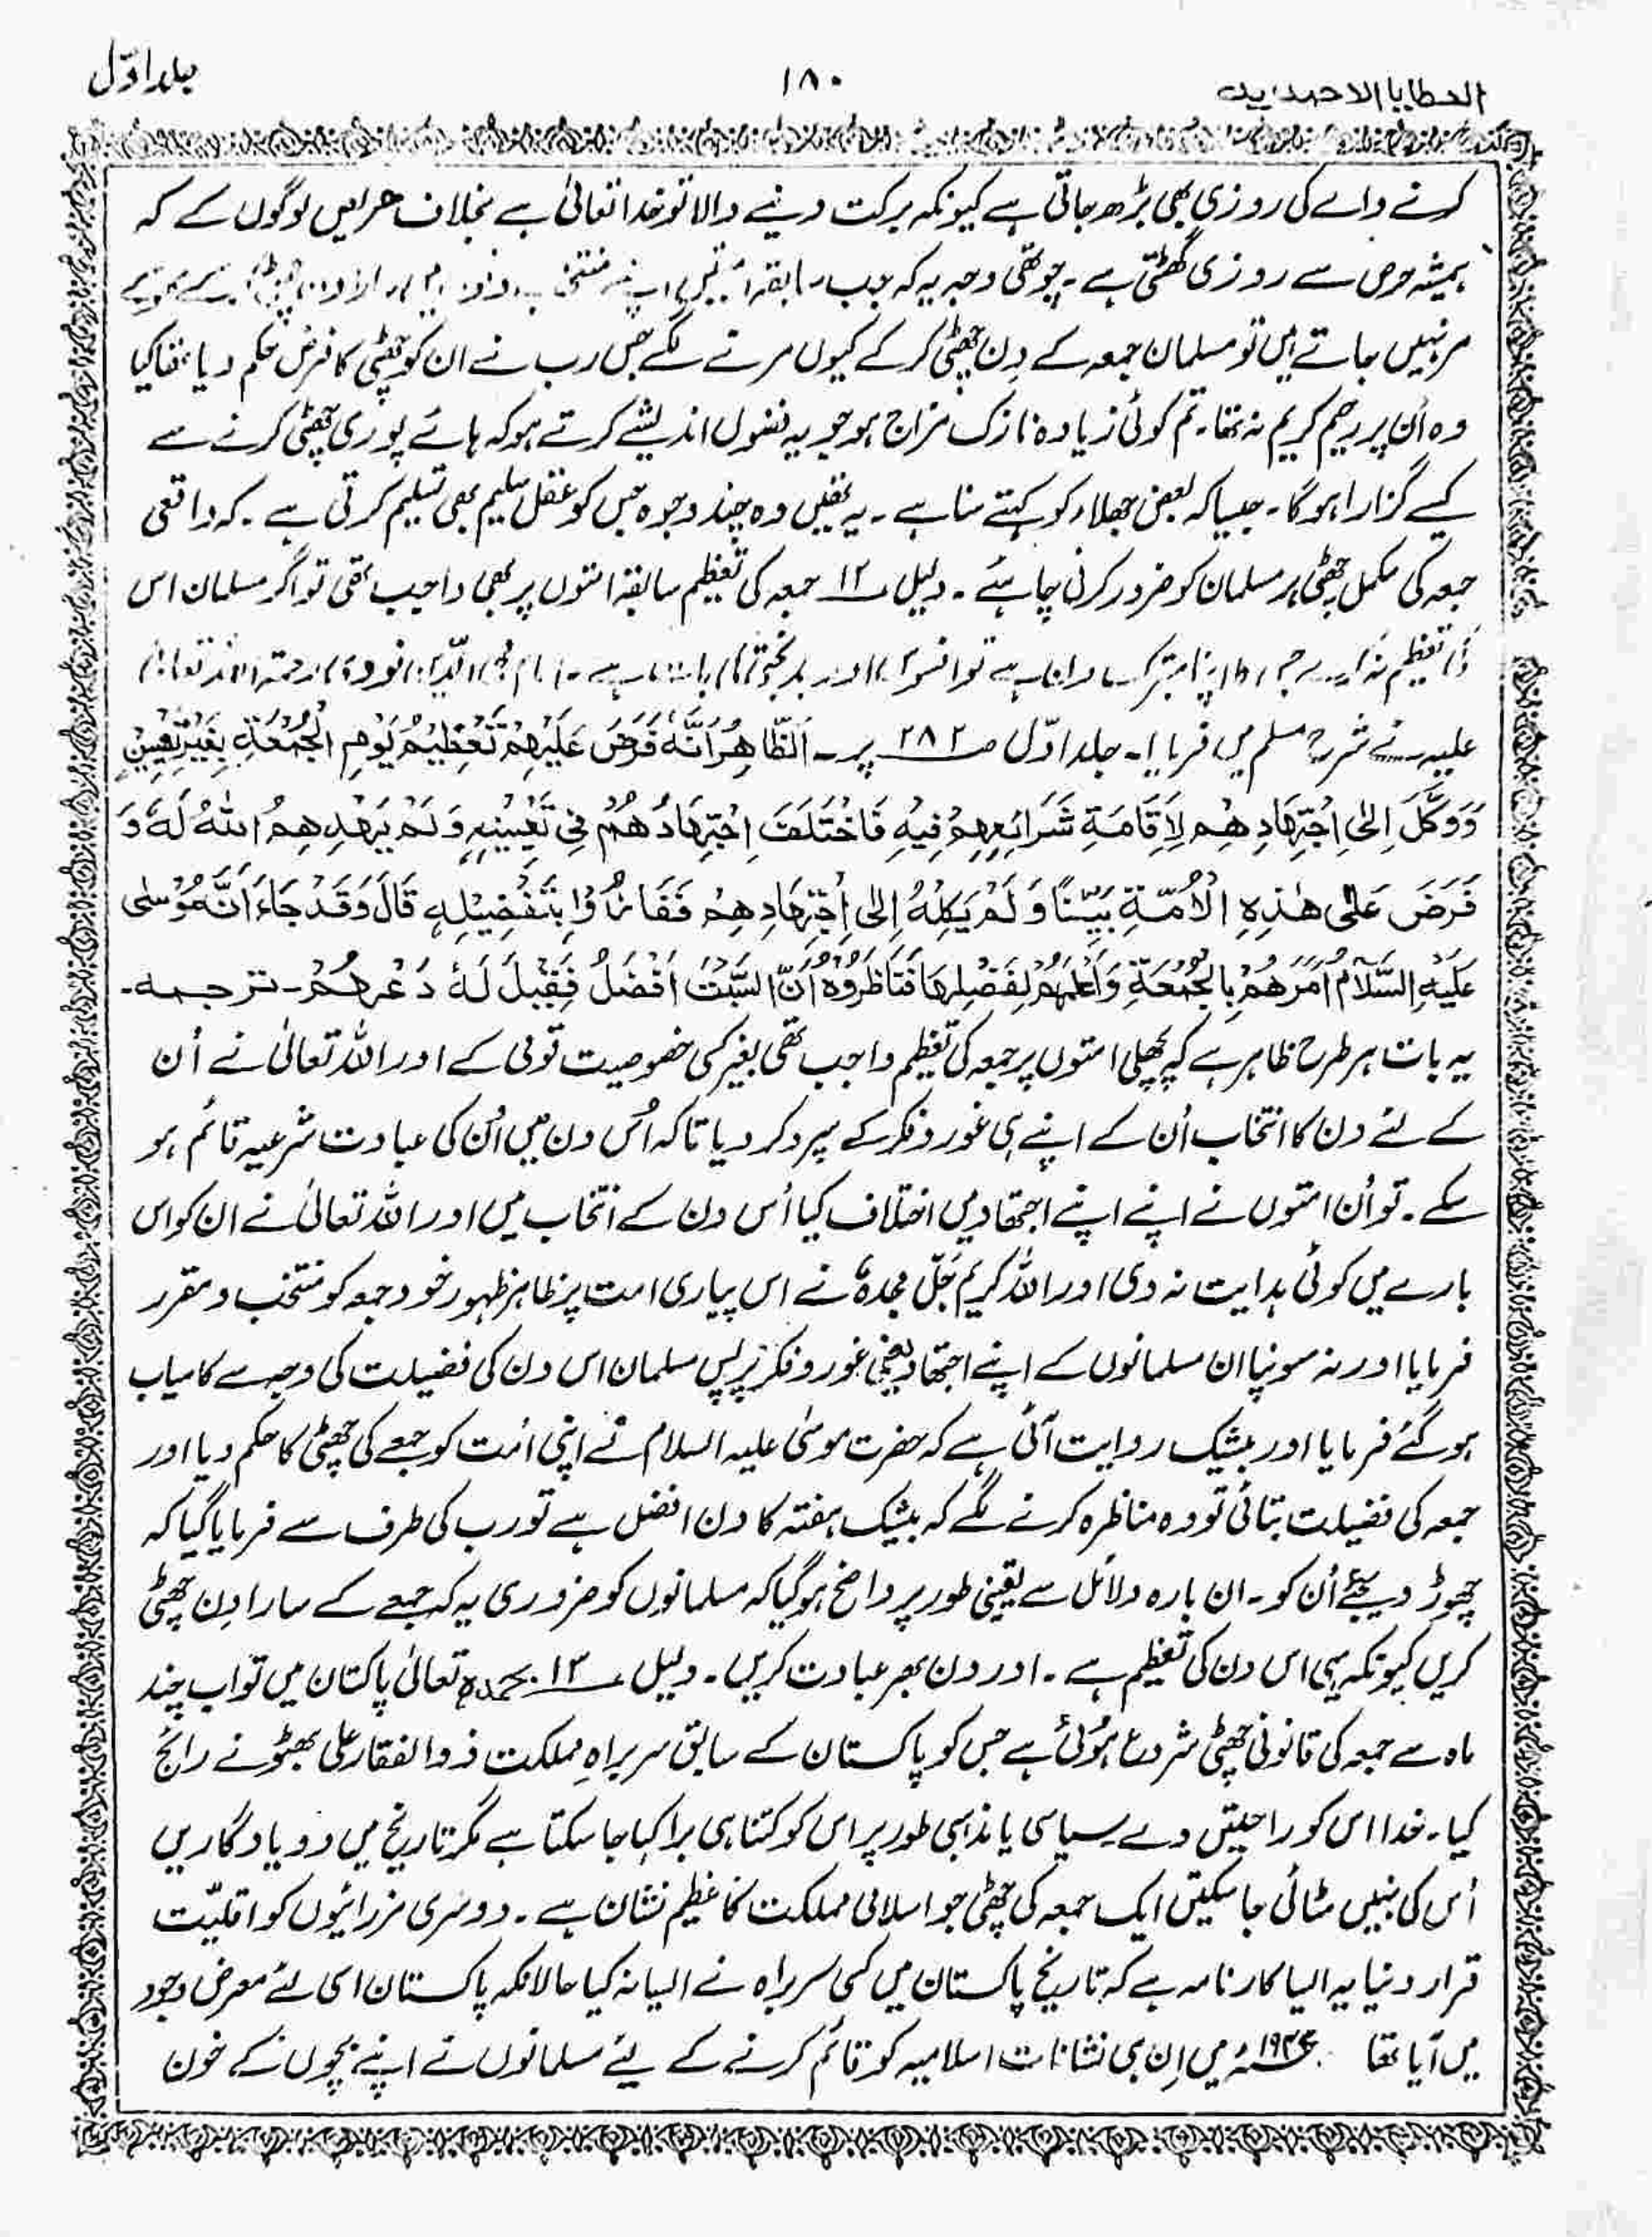 العطایا الاحمدیہ
۱۸۰
جلد اوّل
کرنے والے کی روزی بھی بڑھ جاتی ہے کیونکہ برکت دینے والا تو خدا تعالیٰ ہے بخلاف حریص لوگوں کے کہ
ہمیشہ حرص سے روزی گھٹتی ہے۔ چوتھی وجہ یہ کہ جب سابقہ اپنے منتخب
مر نہیں جاتے ہیں تو مسلمان جمعہ کے دن چھٹی کر کے کیوں مرنے لگے جس رب نے ان کو چھٹی کا فرض حکم دیا تھا کیا
وہ اُن پر رحیم کریم نہ تھا۔ تم کوئی زیادہ نازک مزاج ہو جو یہ فضول اندیشے کرتے ہو کہ ہائے پوری چھٹی کرنے سے
کیسے گزارا ہوگا۔ جیسا کہ بعض جھلاء کو کہتے سنا ہے۔ یہ تھیں وہ چند وجوہ جس کو عقل سلیم بھی تسلیم کرتی ہے۔ کہ واقعی
جمعہ کی مکمل چھٹی ہر مسلمان کو ضرور کرنی چاہیئے۔ دلیل ۱۲ جمعہ کی تعظیم سابقہ امتوں پر بھی واجب تھی تو اگر مسلمان اس
کی تعظیم نہ کرے جو اس کا اپنا متبرک دن ہے تو افسوس اور بدبختی کی بات ہے۔ امام محی الدین نووی رحمۃ اللہ تعالیٰ
علیہ نے شرح مسلم میں فرمایا۔ جلد اوّل صـ ۲۸۲ پر۔ اَلظَّاهِرُ اَنَّهٗ فَرَضَ عَلَيْهِمْ تَعْظِيْمُ يَوْمِ الْجُمُعَةِ بِغَيْرِ تَعْيِيْنٍ
وَوَكَّلَ اِلىٰ اِجْتِهَادِهِمْ لِاِقَامَةِ شَرَائِعِهِمْ فِيْهِ فَاخْتَلَفَ اِجْتِهَادُهُمْ فِىْ تَعْيِيْنِهٖ وَلَمْ يَهْدِهِمُ اللّٰهُ لَهٗ وَ
فَرَضَ عَلىٰ هٰذِهِ الْاُمَّةِ بَيِّنًا وَلَمْ يَكِلْهُ اِلىٰ اِجْتِهَادِهِمْ فَفَازُوْا بِتَفْضِيْلِهٖ قَالَ وَقَدْ جَاءَ اَنَّ مُوْسٰى
عَلَيْهِ السَّلَامُ اَمَرَهُمْ بِالْجُمُعَةِ وَاَعْلَمَهُمْ لِفَضْلِهَا فَنَاظَرُوْهُ اَنَّ السَّبْتَ اَفْضَلُ فَقِيْلَ لَهٗ دَعْهُمْ۔ ترجمہ۔
یہ بات ہر طرح ظاہر ہے کہ پچھلی امتوں پر جمعہ کی تعظیم واجب تھی بغیر کسی خصوصیت قولی کے اور اللہ تعالیٰ نے اُن
کے لئے دن کا انتخاب اُن کے اپنے ہی غور و فکر کے سپرد کر دیا تاکہ اُس دن میں اُن کی عبادت شرعیہ قائم ہو
سکے۔ تو اُن امتوں نے اپنے اپنے اجتہاد میں اختلاف کیا اُس دن کے انتخاب میں اور اللہ تعالیٰ نے ان کو اس
بارے میں کوئی ہدایت نہ دی اور اللہ کریم جَلّ مجدہٗ نے اس پیاری امت پر ظاہر ظہور خود جمعہ کو منتخب و مقرر
فرمایا اور نہ سونپا ان مسلمانوں کے اپنے اجتہاد یعنی غور و فکر پر پس مسلمان اس دن کی فضیلت کی وجہ سے کامیاب
ہو گئے فرمایا اور بیشک روایت آئی ہے کہ حضرت موسیٰ علیہ السلام نے اپنی اُمت کو جمعے کی چھٹی کا حکم دیا اور
جمعہ کی فضیلت بتائی تو وہ مناظرہ کرنے لگے کہ بیشک ہفتہ کا دن افضل ہے تو رب کی طرف سے فرمایا گیا کہ
چھوڑ دیجئے اُن کو۔ ان بارہ دلائل سے یقینی طور پر واضح ہو گیا کہ مسلمانوں کو ضروری یہ کہ جمعے کے سارا دِن چھٹی
کریں کیونکہ یہی اس دن کی تعظیم ہے۔ اور دن بھر عبادت کریں۔ دلیل ۱۳ بحمدہٖ تعالیٰ پاکستان میں تو اب چند
ماہ سے جمعہ کی قانونی چھٹی شروع ہُوئی ہے جس کو پاکستان کے سابق سربراہِ مملکت ذوالفقار علی بھٹو نے رائج
کیا۔ خدا اس کو راحتیں دے سیاسی یا مذہبی طور پر اس کو کتنا ہی برا کہا جا سکتا ہے مگر تاریخ میں دو یادگاریں
اُس کی نہیں مٹائی جا سکتیں ایک جمعہ کی چھٹی جو اسلامی مملکت کا عظیم نشان ہے۔ دوسری مرزائیوں کو اقلیّت
قرار دینا یہ ایسا کارنامہ ہے کہ تاریخ پاکستان میں کسی سربراہ نے ایسا نہ کیا حالانکہ پاکستان اسی لئے معرض وجود
میں آیا تھا میں اِن ہی نشانات اسلامیہ کو قائم کرنے کے لیئے مسلمانوں نے اپنے بچوں کے خون